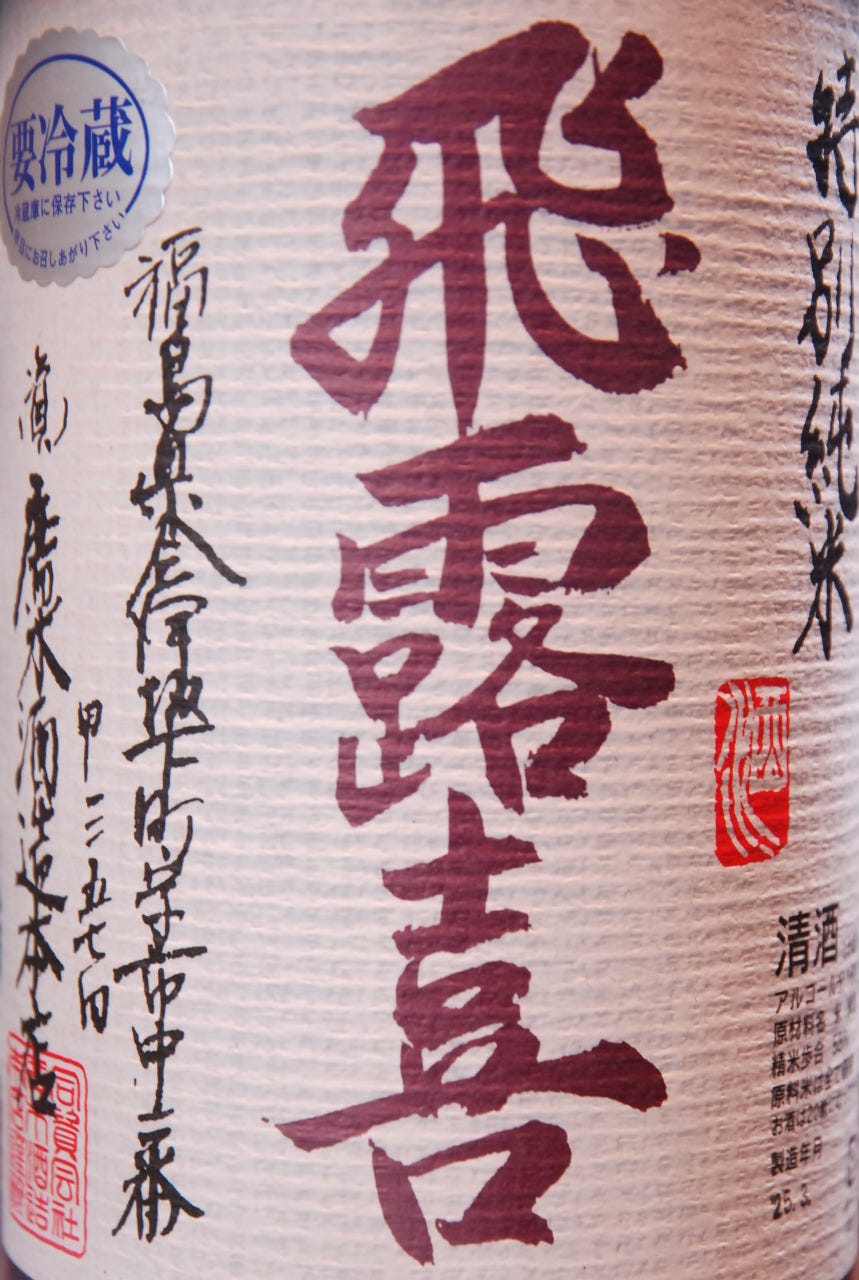 特別純米
酒
清酒
アルコール
原材料名 米
精米歩合
原料米は
お酒は20歳
製造年月
25.3
飛露喜
福島県会津坂下町字市中二番
甲三五七四
廣木酒造本店
合資会社
要冷蔵
冷蔵庫に保存下さい
早目にお召しあがり下さい